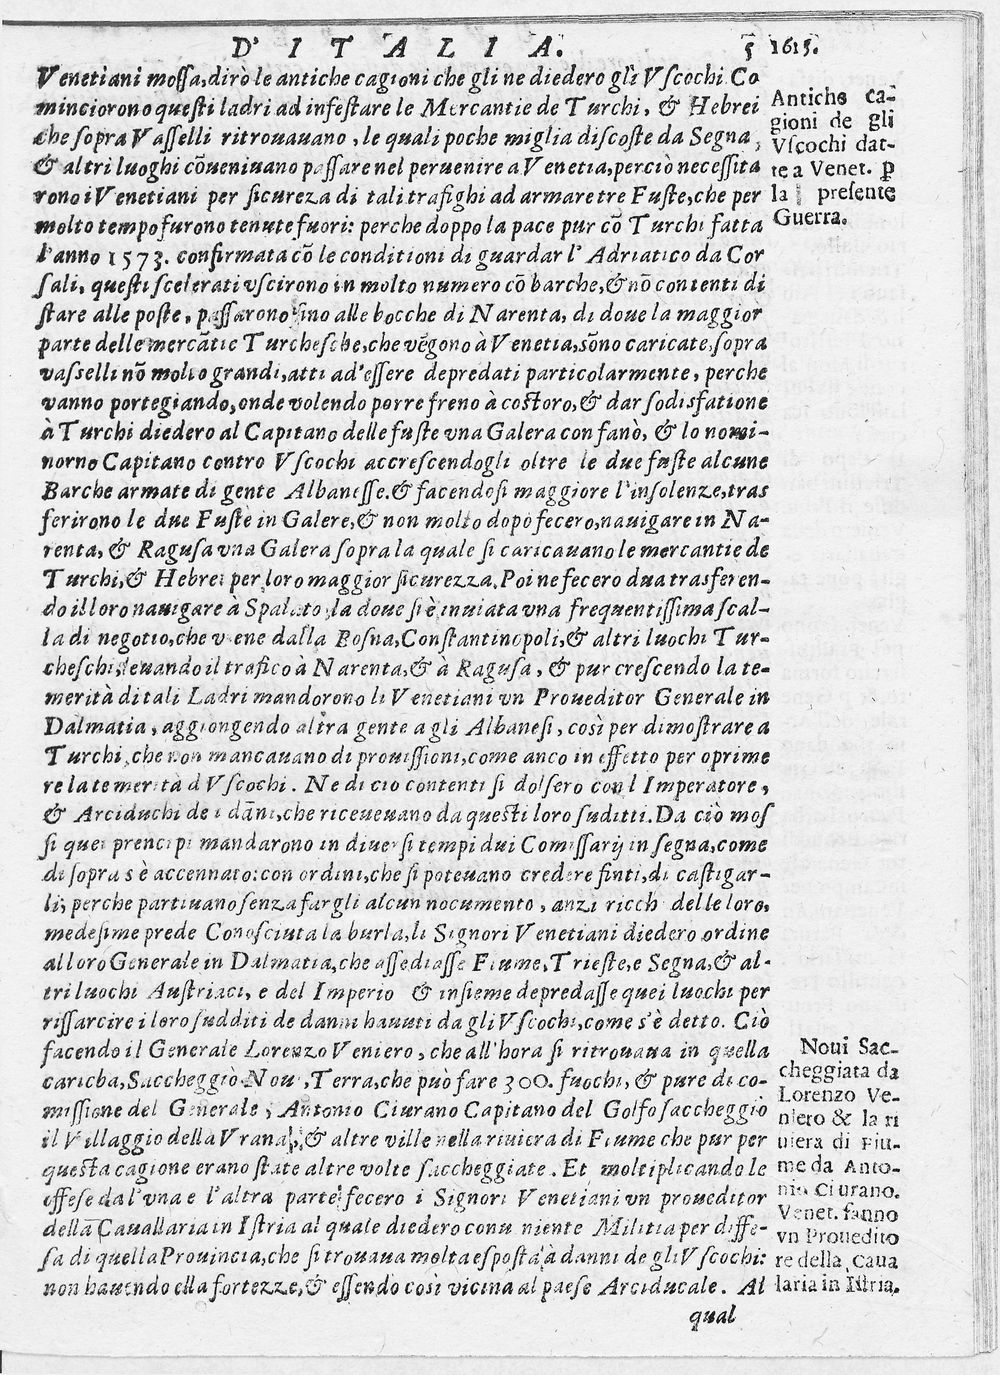 D' I T A L I A. 5 1615.
Venetiani mossa, dirò le antiche cagioni che gli ne diedero gli Vscochi. Co
minciorono questi ladri ad infestare le Mercantie de Turchi, & Hebrei
che sopra Vasselli ritrouauano, le quali poche miglia discoste da Segna,
& altri luoghi cõueniuano passare nel peruenire a Venetia, perciò necessita
rono i Venetiani per sicureza di tali trafighi ad armare tre Fuste, che per
molto tempo furono tenute fuori: perche doppo la pace pur cõ Turchi fatta
l'anno 1573. confirmata cõ le conditioni di guardar l'Adriatico da Cor
sali, questi scelerati vscirono in molto numero cõ barche, & nõ contenti di
stare alle poste, passarono sino alle bocche di Narenta, di doue la maggior
parte delle mercãtie Turchesche, che vẽgono à Venetia, sõno caricate, sopra
vasselli nõ molto grandi, atti ad'essere depredati particolarmente, perche
vanno portegiando, onde volendo porre freno à costoro, & dar sodisfatione
à Turchi diedero al Capitano delle fuste vna Galera con fanò, & lo nomi-
norno Capitano contro Vscochi accrescendogli oltre le due fuste alcune
Barche armate di gente Albanesse. & facendosi maggiore l'insolenze, tras
ferirono le due Fuste in Galere, & non molto dopo fecero, nauigare in Na-
renta, & Ragusa vna Galera sopra la quale si caricauano le mercantie de
Turchi, & Hebrei per loro maggior sicurezza. Poi ne fecero dua trasferen-
do il loro nauigare à Spalato, la doue si è inuiata vna frequentissima scal-
la di negotio, che viene dalla Bosna, Constantinopoli, & altri luochi Tur-
cheschi, leuando il trafico à Narenta, & à Ragusa, & pur crescendo la te-
merità di tali Ladri mandorono li Venetiani vn Proueditor Generale in
Dalmatia, aggiongendo altra gente a gli Albanesi, così per dimostrare a
Turchi, che non mancauano di prouissioni, come anco in effetto per oprime
re la temerità d Vscochi. Ne di cio contenti si dolsero con l Imperatore,
& Arciduchi de i dãni, che riceueuano da questi loro suditti. Da ciò mos
si quei prencipi mandarono in diuersi tempi dui Comissarij in segna, come
di sopra s è accennato: con ordini, che si poteuano credere finti, di castigar-
li; perche partiuano senza fargli alcun nocumento, anzi ricch delle loro,
medesime prede Conosciuta la burla, li Signori Venetiani diedero ordine
al loro Generale in Dalmatia, che assediasse Fiume, Trieste, e Segna, & al-
tri luochi Austriaci, e del Imperio & insieme depredasse quei luochi per
rissarcire i loro sudditi de danni hauuti da gli Vscochi, come s'è detto. Ciò
facendo il Generale Lorenzo Veniero, che all'hora si ritrouaua in quella
caricha, Saccheggiò Noui, Terra, che può fare 300. fuochi, & pure di co-
missione del Generale, Antonio Ciurano Capitano del Golfo saccheggiò
il Villaggio della Vrana, & altre ville nella riuiera di Fiume che pur per
questa cagione erano state altre volte saccheggiate. Et moltiplicando le
offese da l'vna e l'altra parte fecero i Signori Venetiani vn proueditor
della Cauallaria in Istria al quale diedero conu niente Militia per diffe-
sa di quella Prouincia, che si trouaua molta esposta à danni de gli Vscochi:
non hauendo ella fortezze, & essendo così vicina al paese Arciducale. Al
qual
Antiche ca-
gioni de gli
Vscochi dat-
te a Venet. ꝑ
la presente
Guerra.
Noui Sac-
cheggiata da
Lorenzo Ve-
niero & la ri
uiera di Fiu-
me da Anto-
nio Ciurano.
Venet. fanno
vn Prouedito
re della Caua
laria in Istria.